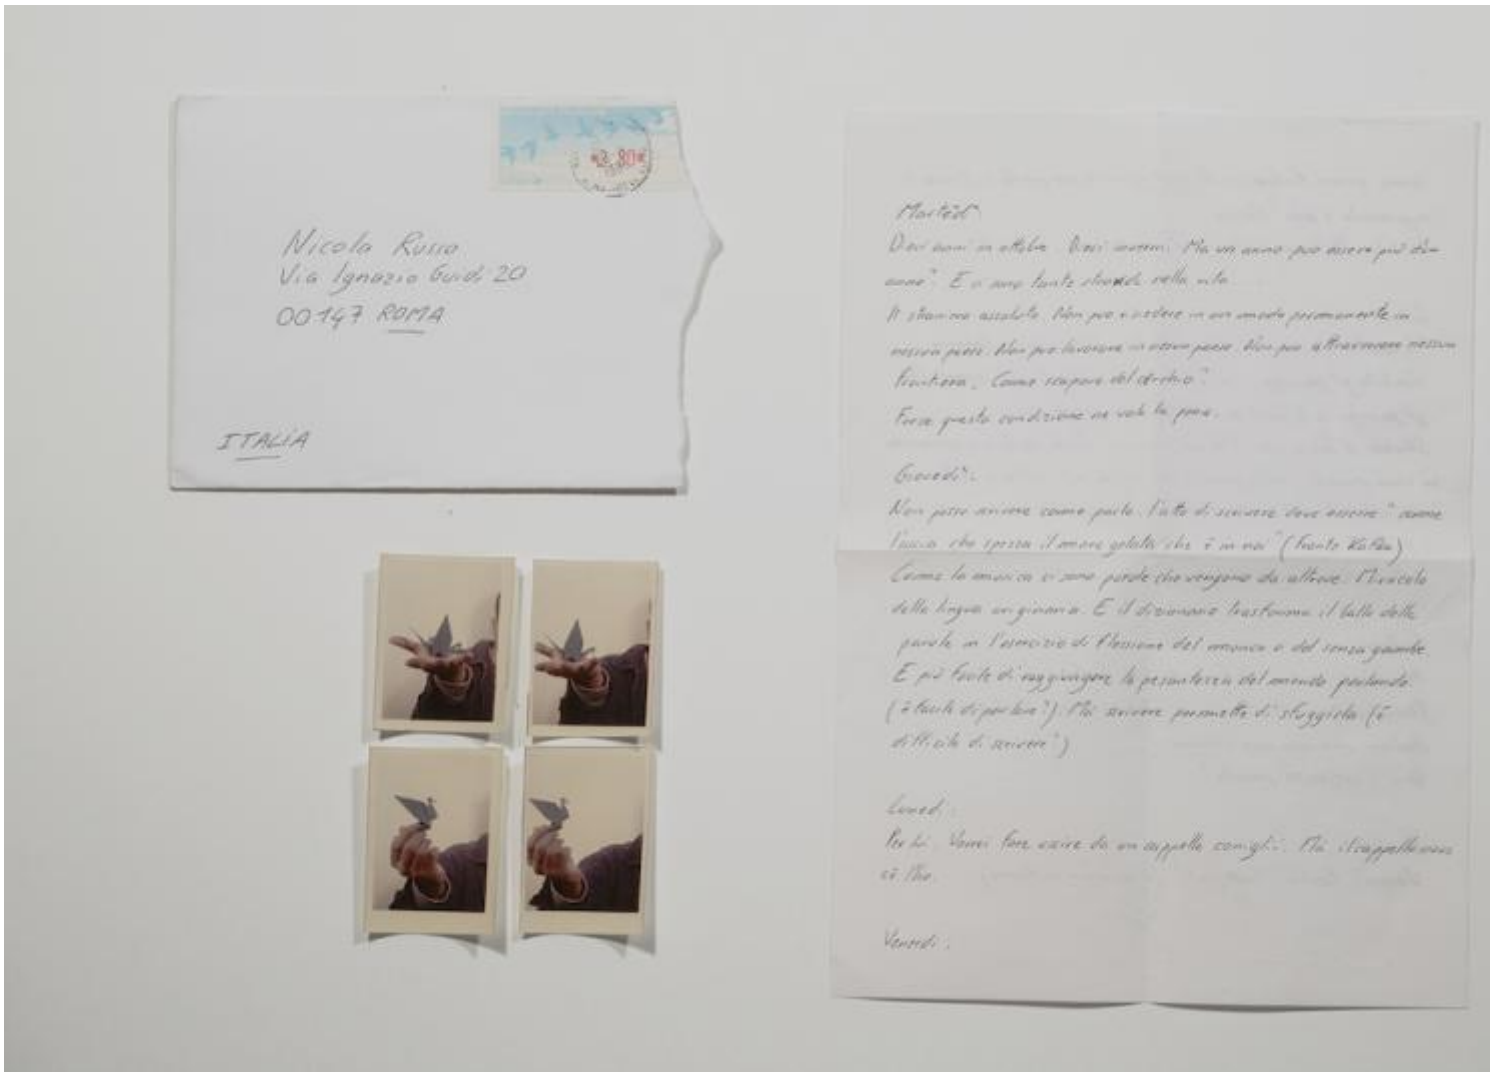 *2,80*
Nicola Russo
Via Ignazio Guidi 20
00147 ROMA
ITALIA
Martedì
Dieci anni in ottobre. Dieci inverni. Ma un anno può essere più d'un
anno? E ci sono tante strade nella vita.
Il straniero assoluto. Non può risiedere in un modo permanente in
nessun paese. Non può lavorare in nessun paese. Non può attraversare nessun
frontiera. Come scapare del cerchio?
Forse questa condizione ne vale la pena.
Giovedì:
Non posso scrivere come parlo. L'atto di scrivere deve essere "come
l'ascia che spezza il mare gelato che è in noi" (Frantz Kafka)
Come la musica ci sono parole che vengono da altrove. Miracolo
della lingua originaria. E il dizionario trasforma il ballo delle
parole in l'esercizio di flessione del monco o del senza gambe.
E più facile di raggiungere la pesantezza del mondo parlando.
(è facile di parlare?). Mà scrivere permette di sfuggirla (è
difficile di scrivere?)
Lunedì:
Per Li. Vorrei fare uscire da un cappello conigli. Mà il cappello
Venerdì: